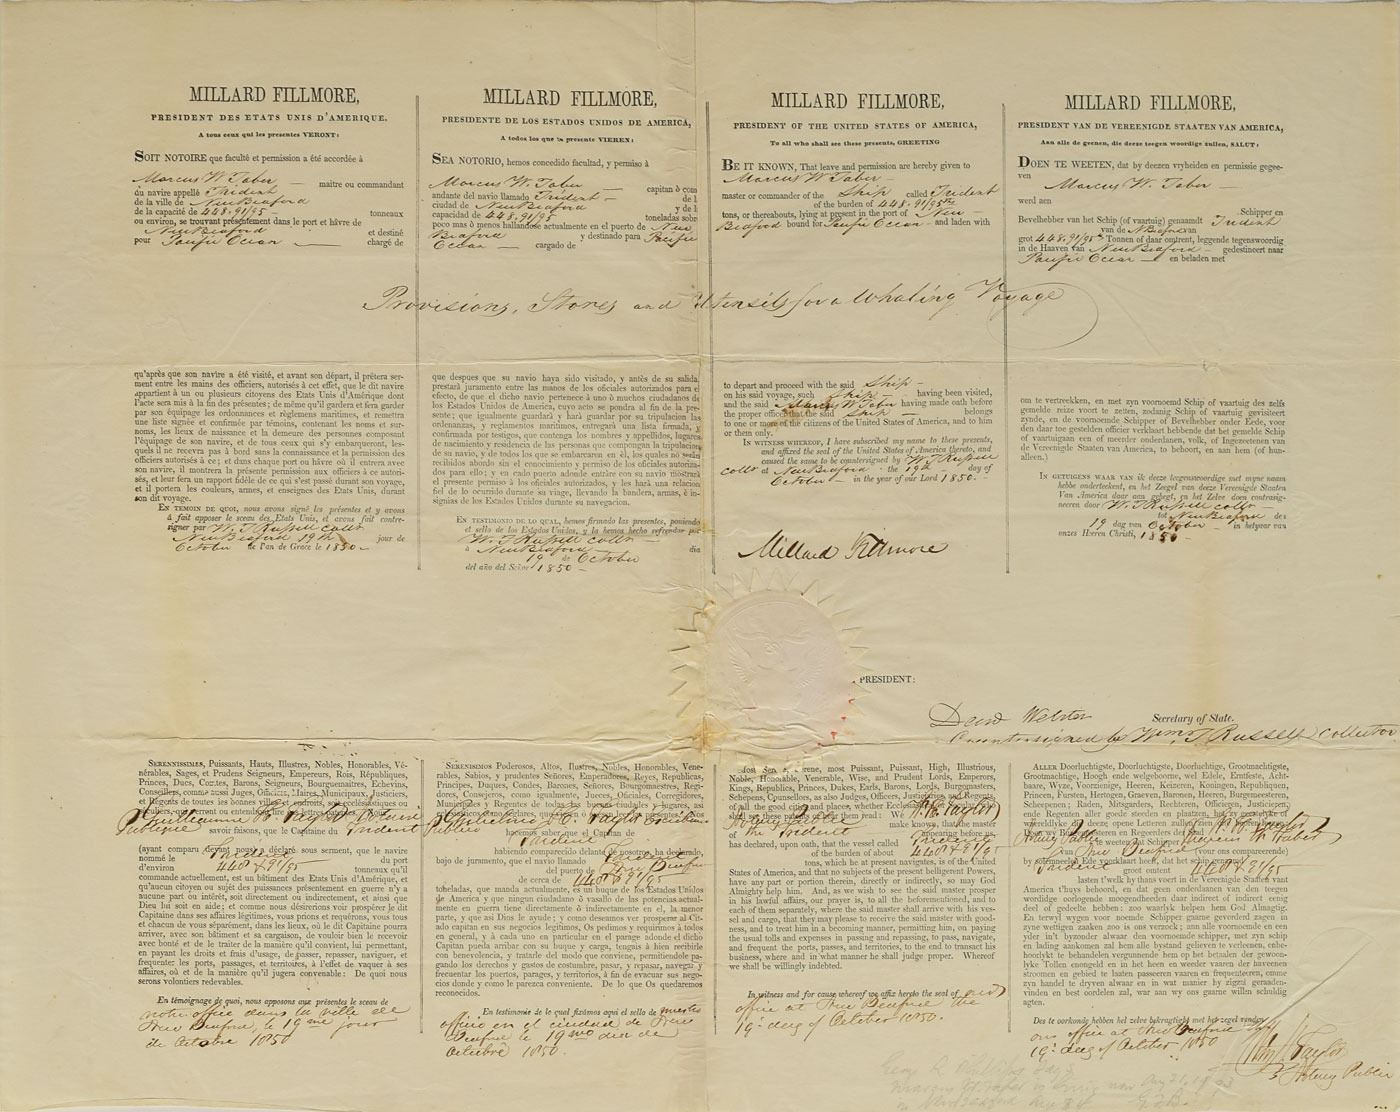 MILLARD FILLMORE,
PRESIDENT DES ETATS UNIS D'AMERIQUE.
A tous ceux qui les presentes VERONT:
SOIT NOTOIRE que faculté et permission a été accordée à
Marcus W. Taber maitre ou commandant
du navire appellé Trident
de la ville de New Bedford
de la capacité de 448.91/95 tonneaux
ou environ, se trouvant présentement dans le port et hâvre de
New Bedford et destiné
pour Pacific Ocean chargé de
MILLARD FILLMORE,
PRESIDENTE DE LOS ESTADOS UNIDOS DE AMERICA,
A todos los que la presente VIEREN:
SEA NOTORIO, hemos concedido facultad, y permiso à
Marcus W. Taber capitan ò com
andante del navio llamado Trident de l
ciudad de New Bedford y de l
capacidad de 448.91/95 toneladas sobe
poco mas ò menos hallandose actualmente en el puerto de New
Bedford y destinado para Pacific
Ocean cargado de
MILLARD FILLMORE,
PRESIDENT OF THE UNITED STATES OF AMERICA,
To all who shall see these presents, GREETING
BE IT KNOWN, That leave and permission are hereby given to
Marcus W Taber
master or commander of the Ship called Trident
of the burden of 448.91/95ths
tons, or thereabouts, lying at present in the port of New
Bedford bound for Pacific Ocean and laden with
MILLARD FILLMORE,
PRESIDENT VAN DE VEREENIGDE STAATEN VAN AMERICA,
Aan alle de geenen, die deeze tegenswoordige zullen zien, SALUT:
DOEN TE WEETEN, dat by deezen vryheiden en permissie gegee-
ven Marcus W. Taber
werd aen
Schipper en
Bevelhebber van het Schip (of vaartuig) genaamdt Trident
van de N Bedford van
grot 448.91/95 Tonnen of daar omtrent, leggende tegenswoordig
in de Haaven van New Bedford gedestineert naar
Pacific Ocean en beladen met
Provisions, Stores and Utensils for a Whaling Voyage
qu'après que son navire a été visité, et avant son départ, il prêtera ser-
ment entre les mains des officiers, autorisés à cet effet, que le dit navire
appartient à un ou plusieurs citoyens des Etats Unis d'Amérique dont
l'acte sera mis à la fin des présentes; de même qu'il gardera et fera garder
par son équipage les ordonnances et règlemens maritimes, et remettra
une liste signée et confirmée par témoins, contenant les noms et sur-
noms, les lieux de naissance et la demeure des personnes composant
l'équipage de son navire, et de tous ceux qui s'y embarqueront, les-
quels il ne recevra pas à bord sans la connaissance et la permission des
officiers autorisés à ce; et dans chaque port ou hâvre où il entrera avec
son navire, il montrera la présente permission aux officiers à ce autori-
sés, et leur fera un rapport fidèle de ce qui s'est passé durant son voyage,
et il portera les couleurs, armes, et enseignes des Etats Unis, durant
son dit voyage.
EN TEMOIN DE QUOI, nous avons signé les présentes et y avons
à fait apposer le sceau des Etats Unis, et avons fait contre-
signer par W. T. Russell collr
New Bedford 19th jour de
October de l'an de Grace le 1850
que despues que su navio haya sido visitado, y antès de su salida,
prestará juramento entre las manos de los oficiales autorizados para el
efecto, de que el dicho navio pertenece à uno ò muchos ciudadanos de
los Estados Unidos de America, cuyo acto se pondra al fin de la pre-
sente; que igualmente guardará y hará guardar por su tripulacion las
ordenanzas, y reglamentos maritimos, entregará una lista firmada, y
confirmada por testigos, que contenga los nombres y appellidos, lugares
de nacimiento y residencia de las personas que compongan la tripulacion
de su navio, y de todos los que se embarcaren en èl, los quales no seràn
recibidos abordo sin el conocimiento y permiso de los oficiales autoriza-
dos para ello; y en cada puerto adonde entràre con su navio mostrarà
el presente permiso à los oficiales autorizados, y les hará una relacion
fiel de lo ocurrido durante su viage, llevando la bandera, armas, è in-
signias de los Estados Unidos durante su navegacion.
EN TESTIMONIO DE LO QUAL, hemos firmado las presentes, poniendo
el sello de los Estados Unidos, y la hemos hecho refrendar por
W. T. Russell collr
à New Bedford dia
19 de October
del año del Señor 1850
to depart and proceed with the said Ship
on his said voyage, such Ship having been visited,
and the said Marcus W Taber having made oath before
the proper officer that the said Ship belongs
to one or more of the citizens of the United States of America, and to him
or them only.
IN WITNESS WHEREOF, I have subscribed my name to these presents,
and affixed the seal of the United States of America thereto, and
caused the same to be countersigned by W. T. Russell
collr at New Bedford the 19th day of
October in the year of our Lord 1850.
Millard Fillmore
om te vertreekken, en met zyn voornoemd Schip of vaartuig des zelfs
gemelde reize voort te zetten, zodanig Schip of vaartuig gevisiteert
zynde, en de voornoemde Schipper of Bevelhebber onder Eede, voor
den daar toe gestelden officier verklaart hebbende dat het gemelde Schip
of vaartuigaan een of meerder onderdanen, volk, of Ingezeetenen van
de Vereenigde Staaten van America, te behoort, en aan hem (of hun-
alleen.)
IN GETUIGENS WAAR VAN ik deeze teegenswoordige met myne naam
hebbe onderteekent, en het Zeegel van deeze Vereenigde Staaten
Van America daar aan gehegt, en het Zelve doen contrasig-
neeren door W. T. Russell collr
tot New Bedford den
19 dag van October in hetyaar van
onzes Heeren Christi, 1850
PRESIDENT:
Danl Webster Secretary of State.
Countersigned by Wm. T. Russell Collector
SERENISSIMES, Puissants, Hauts, Illustres, Nobles, Honorables, Vé-
nérables, Sages, et Prudens Seigneurs, Empereurs, Rois, Républiques,
Princes, Ducs, Comtes, Barons, Seigneurs, Bourguemaitres, Echevins,
Conseillers, comme aussi Juges, Officiers, Maires, Municipaux, Justiciers,
et Régents de toutes les bonnes villes et endroits, soit ecclésiastiques ou
Publique
savoir faisons, que le Capitaine du Trident
(ayant comparu devant nous) a déclaré sous serment, que le navire
nommé le Trident du port
d'environ 448 & 91/95 tonneaux qu'il
commande actuellement, est un bâtiment des Etats Unis d'Amérique,
et qu'aucun citoyen ou sujet des puissances présentement en guerre n'y a
aucune part ou intérêt, soit directement ou indirectement, et ainsi que
Dieu lui soit en aide; et comme nous désirerions voir prospérer le dit
Capitaine dans ses affaires légitimes, vous prions et requérons, vous tous
et chacun de vous séparément, dans les lieux, où le dit Capitaine pourra
arriver, avec son bâtiment et sa cargaison, de vouloir bien le recevoir
avec bonté et de le traiter de la manière qu'il convient, lui permettant,
en payant les droits et frais d'usage, de passer, repasser, naviguer, et
frequenter les ports, passages, et territoires, à l'effet de vaquer à ses
affaires, où et de la manière qu'il jugera convenable: De quoi nous
serons volontiers redevables.
En témoignage de quoi, nous apposons aux présentes le sceau de
notre office dans la ville de
Fair Haven, le 19me jour
de Octobre 1850
SERENISIMOS Poderosos, Altos, Ilustres, Nobles, Honorables, Vene-
rables, Sabios, y prudentes Señores, Emperadores, Reyes, Republicas,
Principes, Duques, Condes, Barones, Señores, Bourgomaestres, Regi-
dores, Consejeros, como igualmente, Jueces, Oficiales, Corregidores,
Municipales y Regentes de todas las buenas ciudades y lugares, asi
Publico
hacemos saber, que el Capitan de
Trident
habiendo comparecido delante de nosotros, ha declarado,
bajo de juramento, que el navio llamado Trident
del puerto de New Bedford
de cerca de 448 & 91/95
toneladas, que manda actualmente, es un buque de los Estados Unidos
de America y que ningun ciudadano ò vasallo de las potencias actual-
mente en guerra tiene directamente ò indirectamente en el, la menor
parte, y que asi Dios le ayude; y como deseamos ver prosperar al Ci-
ado capitan en sus negocios legitimos, Os pedimos y requirimos à todos
en general, y à cada uno en particular en el parage adonde el dicho
Capitan pueda arribar con su buque y carga, tengais à bien recibirle
con benevolencia, y tratarle del modo que conviene, permitiendole pa-
gando los derechos y gastos de costumbre, pasar, y repasar, navegar y
frecuentar los puertos, parages, y territorios, à fin de evacuar sus nego-
cios donde y como le parezca conveniente. De lo que Os quedaremos
reconocidos.
En testimonio de lo qual fizámos aqui el sello de nuestro
Octubre 1850.
Most Serene, Serene, most Puissant, Puissant, High, Illustrious,
Noble, Honorable, Venerable, Wise, and Prudent Lords, Emperors,
Kings, Republics, Princes, Dukes, Earls, Barons, Lords, Burgomasters,
Schepens, Counsellors, as also Judges, Officers, Justiciaries and Regents,
of all the good cities and places, whether Ecclesiastical or
shall see these patents or hear them read: We Wm. H. Taylor
Notary Public make known, that the master
of the Trident appearing before us,
has declared, upon oath, that the vessel called Trident
of the burden of about 448 & 91/95
tons, which he at present navigates, is of the United
States of America, and that no subjects of the present belligerent Powers,
have any part or portion therein, directly or indirectly, so may God
Almighty help him. And, as we wish to see the said master prosper
in his lawful affairs, our prayer is, to all the beforementioned, and to
each of them separately, where the said master shall arrive with his ves-
sel and cargo, that they may please to receive the said master with good-
ness, and to treat him in a becoming manner, permitting him, on paying
the usual tolls and expenses in passing and repassing, to pass, navigate,
and frequent the ports, passes, and territories, to the end to transact his
business, where and in what manner he shall judge proper. Whereof
we shall be willingly indebted.
In witness and for cause whereof we affix hereto the seal of our
office at the
19 day of October 1850.
ALLER Doorluchtigste, Doorluchtigste, Doorluchtige, Grootmachtigste,
Grootmachtige, Hoogh ende welgeboorne, wel Edele, Erntfeste, Acht-
baare, Wyze, Voorzienige, Heeren, Keizeren, Koningen, Republiquen,
Princen, Fursten, Hertogen, Graeven, Baronen, Heeren, Burgemeesteren,
Scheepenen; Raden, Mitsgarders, Rechteren, Officieren, Justicieren,
Regenten aller goede steeden en plaatsen, het zy geestelyke of
Notary Public te weeten dat Schipper
van (voor ons compareerende)
by solemneelen Ede verklaart heeft, dat het schip genaamt
Trident groot omtent 448 & 91/95
lasten t'welk hy thans voert in de Vereenigde Staaten vant
America t'huys behoord, en dat geen onderdaanen van den teegen
wordige oorlogende moogendheden daar indirect of indirect eenig
deel of gedeelte hebben: zoo waarlyk helpen hem God Almagtig.
En terwyl wygen voor noemde Schipper gaarne gevorderd zagen in
zyne wettigen zaaken zoo is ons verzoek; aan alle voornoemde en een
yder in't byzonder alwaar den voornoemde schipper, met zyn schip
en lading aankomen zal hem alle bystand gelieven te verleenen, enbe-
hoorlykt te behandelen vergunnende hem op het betaalen der gewoon-
lyke Tollen enongeld en in het heen en weeder vaaren der havenen
stroomen en gebied te laaten passeeren vaaren en frequenteeren, omme
zyn handel te dryven alwaar en in wat manier by zigzu geraaden-
vinden en best oordelen zal, war aan wy ons gaarne willen schuldig
agten.
Des te oorkonde hebben het zelve bekragtigt met het zegel van
19 day of October 1850
Wm H Taylor
Notary Public